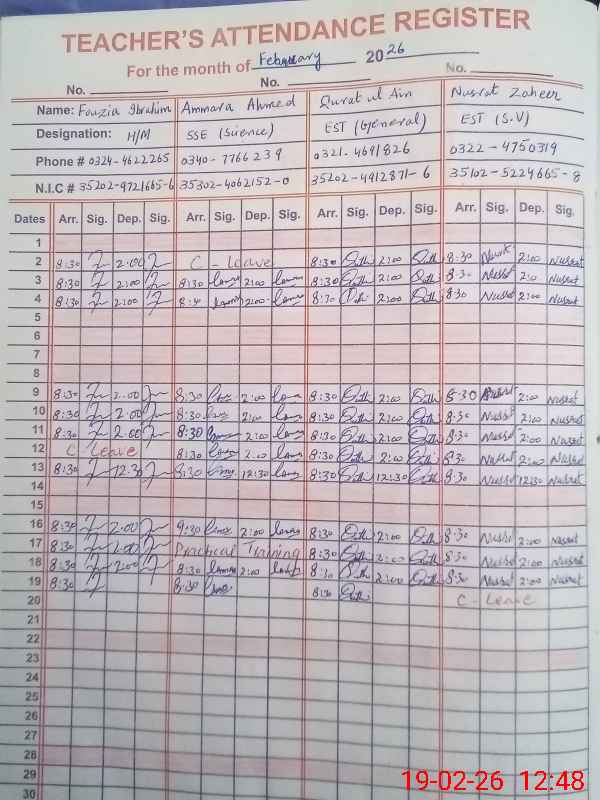 TEACHER'S ATTENDANCE REGISTER
For the month of February 2026
No. No. No.
Name: Fouzia Ibrahim Ammara Ahmed Qurat ul Ain Nusrat Zaheer
Designation: H/M SSE (Science) EST (General) EST (S.V)
Phone # 0324-4622265 0340-7766239 0321-4691826 0322-4750319
N.I.C # 35202-9721665-6 35302-4062152-0 35202-4912871-6 35102-5224665-8
Dates Arr. Sig. Dep. Sig. Arr. Sig. Dep. Sig. Arr. Sig. Dep. Sig. Arr. Sig. Dep. Sig.
1
2 8:30 2:00 C-Leave 8:30 2:00 8:30 2:00 Nusrat
3 8:30 2:00 8:30 2:00 8:30 2:00 8:30 Nusrat
4 8:30 2:00 2:00 2:00 8:30 Nusrat 2:00 Nusrat
5
6
7
8
9 8:30 2:00 8:30 2:00 8:30 2:00 8:30 2:00 Nusrat
10 8:30 2:00 8:30 2:00 8:30 2:00 8:30 Nusrat 2:00 Nusrat
11 8:30 2:00 8:30 2:00 8:30 2:00 8:30 Nusrat 2:00 Nusrat
12 C-Leave 8:30 2:00 8:30 2:00 8:30 Nusrat 2:00 Nusrat
13 8:30 12:30 8:30 12:30 8:30 12:30 8:30 Nusrat 12:30 Nusrat
14
15
16 8:30 2:00 2:00 8:30 2:00 8:30 2:00 Nusrat
17 8:30 2:00 Practical Training 8:30 2:00 8:30 Nusrat 2:00 Nusrat
18 8:30 2:00 8:30 2:00 8:30 2:00 8:30 Nusrat 2:00 Nusrat
19 8:30 8:30 8:30 C-Leave
20
21
22
23
24
25
26
27
28
29
30
19-02-26 12:48